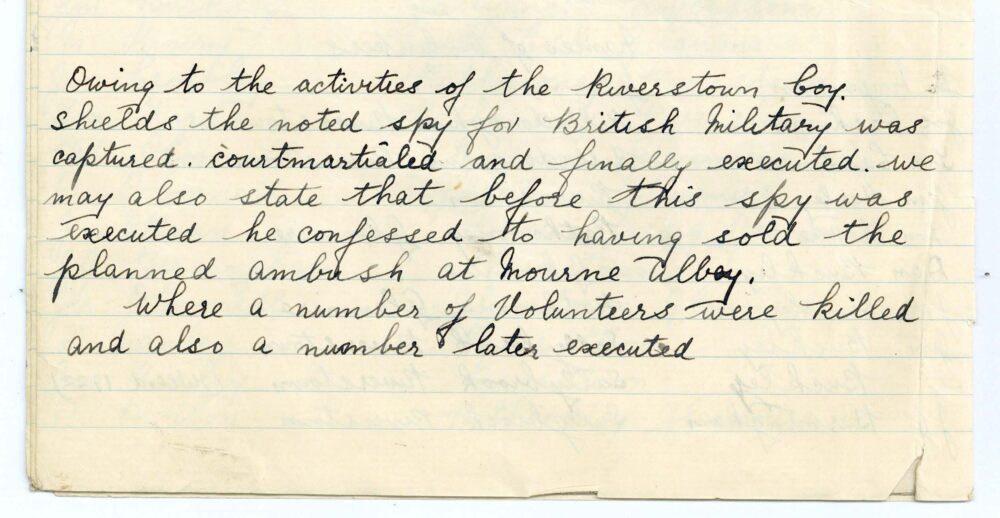 Owing to the activities of the Riverstown Coy.
Shields the noted spy for British Military was
captured. courtmartialed and finally executed. we
may also state that before this spy was
executed he confessed to having sold the
planned ambush at Mourne Abbey.
Where a number of Volunteers were killed
and also a number later executed